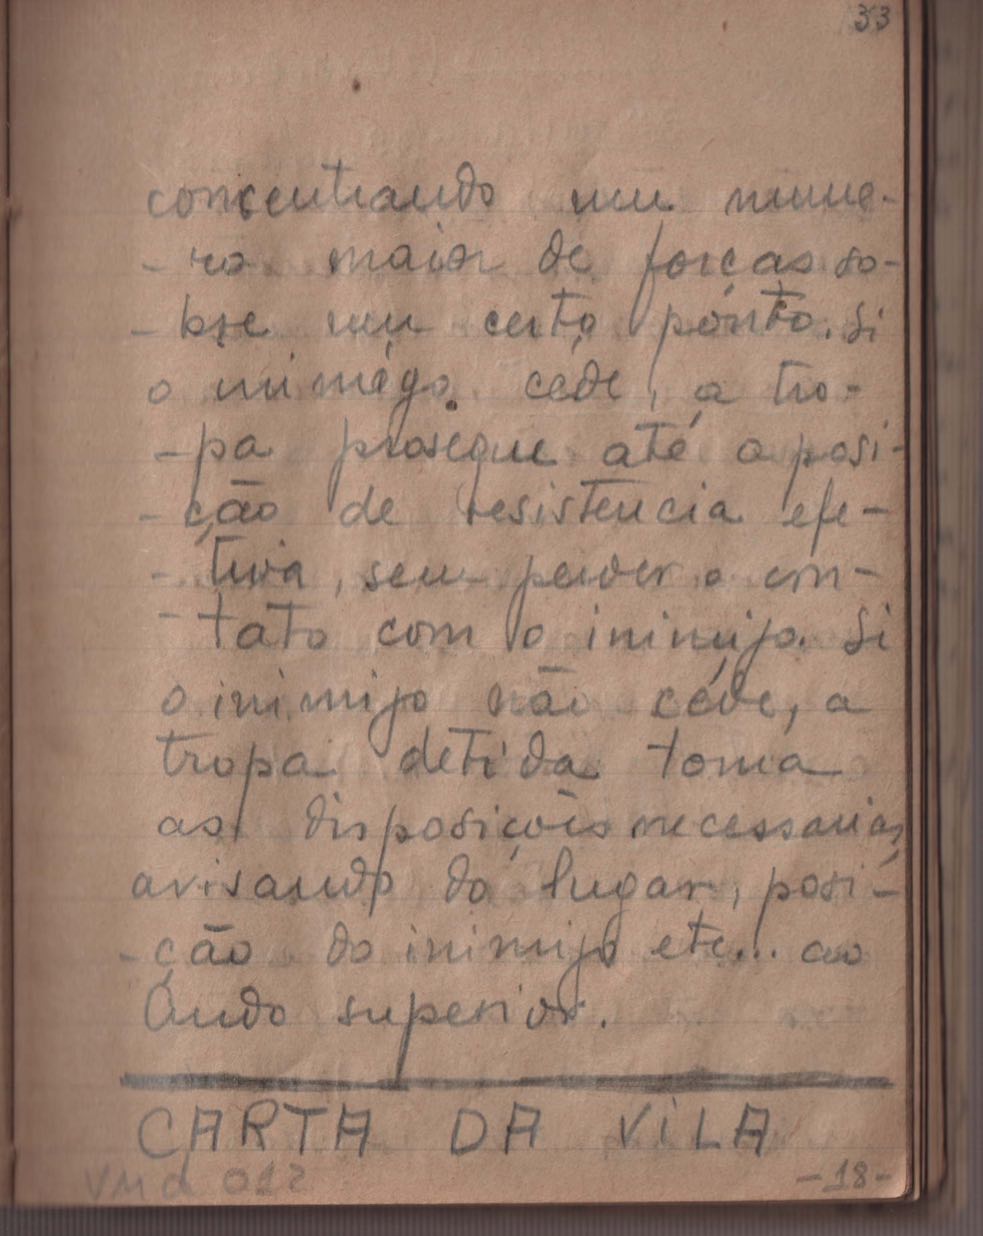 33
concentrando um nume-
- ro maior de forças so-
- bre um certo ponto. Si
o inimigo céde, a tro-
- pa prosegue até a posi-
- ção de resistencia efe-
- tiva, sem perder o con-
- tato com o inimigo. Si
o inimigo não céde, a
tropa detida toma
as disposições necessarias,
avisando do lugar, posi-
- ção do inimigo etc... ao
Cmdo superior.
CARTA DA ViLA
VMd 012
-18-